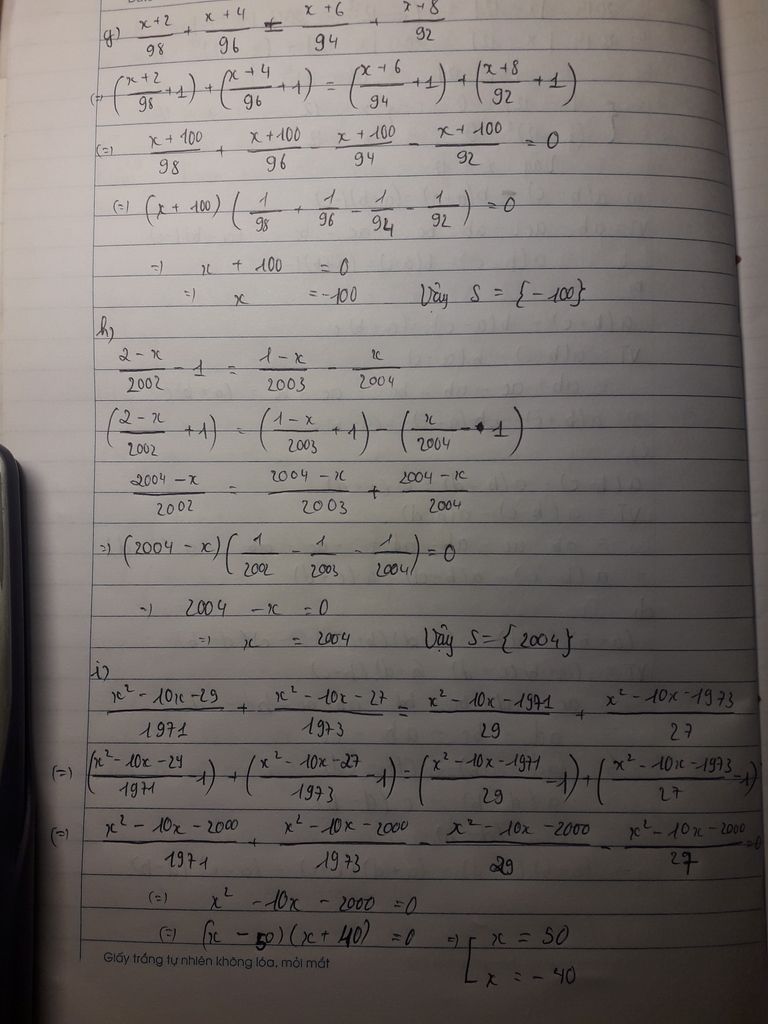 g) (x+2)/98 + (x+4)/96 = (x+6)/94 + (x+8)/92
(=) ((x+2)/98 + 1) + ((x+4)/96 + 1) = ((x+6)/94 + 1) + ((x+8)/92 + 1)
(=) (x+100)/98 + (x+100)/96 - (x+100)/94 - (x+100)/92 = 0
(=) (x + 100) (1/98 + 1/96 - 1/94 - 1/92) = 0
=) x + 100 = 0
=) x = -100 Vậy S = {-100}
h)
(2-x)/2002 - 1 = (1-x)/2003 - x/2004
((2-x)/2002 + 1) = ((1-x)/2003 + 1) - (x/2004 - 1)
(2004-x)/2002 = (2004-x)/2003 + (2004-x)/2004
=) (2004 - x) (1/2002 - 1/2003 - 1/2004) = 0
=) 2004 - x = 0
=) x = 2004 Vậy S = {2004}
i)
(x² - 10x - 29)/1971 + (x² - 10x - 27)/1973 = (x² - 10x - 1971)/29 + (x² - 10x - 1973)/27
(=) ((x² - 10x - 29)/1971 - 1) + ((x² - 10x - 27)/1973 - 1) = ((x² - 10x - 1971)/29 - 1) + ((x² - 10x - 1973)/27 - 1)
(=) (x² - 10x - 2000)/1971 + (x² - 10x - 2000)/1973 - (x² - 10x - 2000)/29 - (x² - 10x - 2000)/27 = 0
(=) x² - 10x - 2000 = 0
(=) (x - 50)(x + 40) = 0 =) [ x = 50
x = -40
Giấy trắng tự nhiên không lóa, mỏi mắt